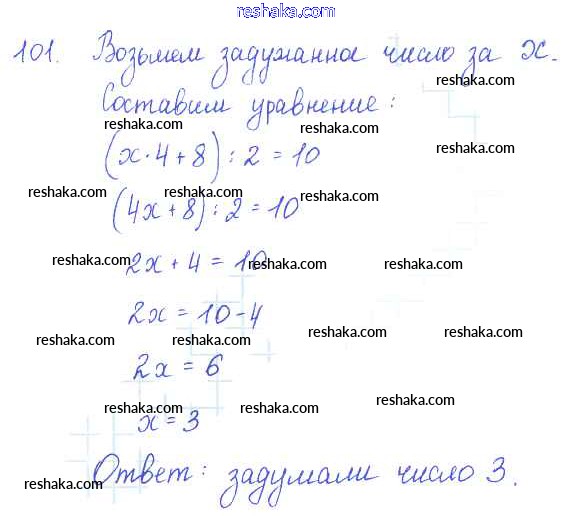 reshaka.com
101. Возьмем задуманное число за x.
reshaka.com reshaka.com
Составим уравнение:
reshaka.com reshaka.com
(x·4+8):2=10
reshaka.com
reshaka.com reshaka.com reshaka.com
(4x+8):2=10
2x+4=10
reshaka.com reshaka.com reshaka.com
2x=10-4
reshaka.com reshaka.com
reshaka.com reshaka.com
2x=6
reshaka.com reshaka.com
x=3
reshaka.com reshaka.com
Ответ: задумали число 3.
reshaka.com reshaka.com reshaka.com